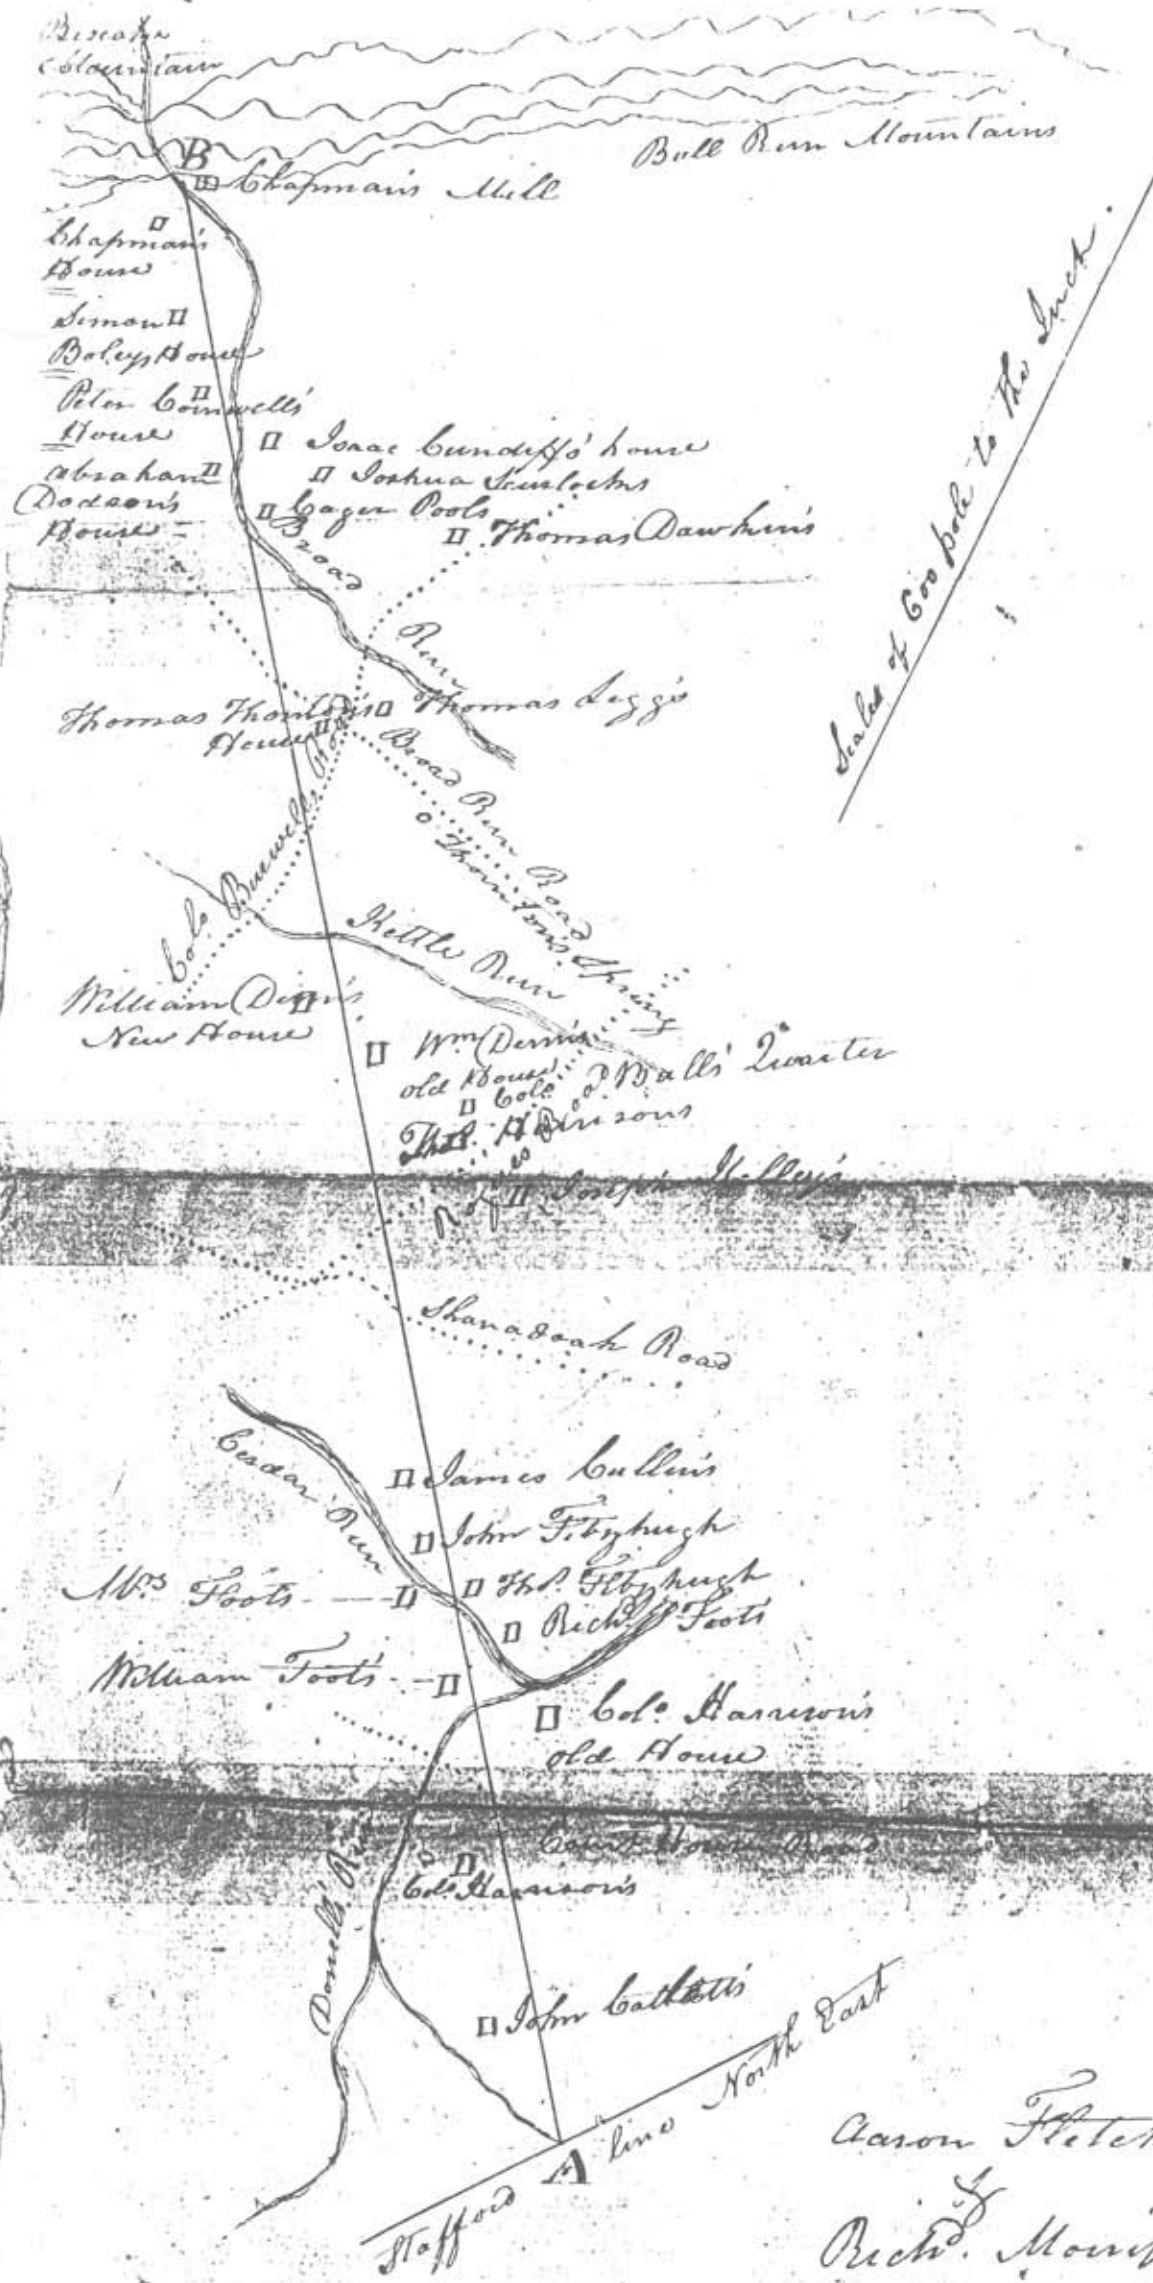 Mountain
Bull Run Mountains
B
Chapman's Mill
Chapman's
House
Simon
Boleys House
Peter Cornwells
House
Isaac Cundiffs house
Joshua Scurlocks
Abraham
Dodson's
House
Cager Pools
Thomas Dawkins
Broad
Run
Scale of 600 pole to the Inch.
Thomas Thornton's
House
Thomas Legg's
Broad Run Road
Thornton's Spring
Colo Burwells
Kettle Run
William
New House
Wm
old House
Colo Balls Quarter
Thos. Harrisons
Joseph Kelley's
Shanadoah Road
Cerdar Run
James Cullins
John Fitzhugh
Mrs Foots
Thos. Fitzhugh
Richd Foots
William Foots
Colo Harrison's
old House
Court House Road
Colo Harrison's
Dorrells Run
John Catletts
Stafford line North East
A
Aaron
Richd.